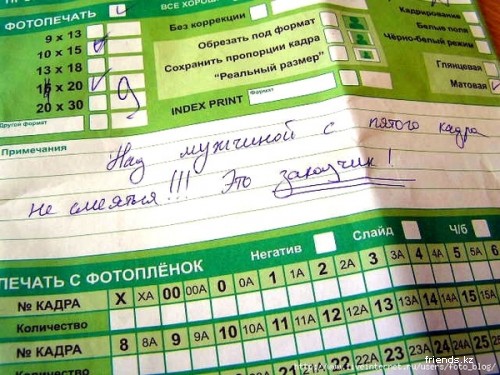 ВСЕ ХОРОШ
ФОТОПЕЧАТЬ
Без коррекции
Кадрирование
9 x 13
Обрезать под формат
Белые поля
10 x 15
Сохранить пропорции кадра
Чёрно-белый режим
13 x 18
"Реальный размер"
Глянцевая
15 x 20
9
Матовая
20 x 30
INDEX PRINT
Формат
Другой формат
Примечания
Над мужчиной с пятого кадра
не смеяться!!! Это заказчик!
ПЕЧАТЬ С ФОТОПЛЁНОК
Негатив
Слайд
Ч/б
№ КАДРА X XA 00 00A 0 0A 1 1A 2 2A 3 3A 4 4A 5 5A 6
Количество
№ КАДРА 8 8A 9 9A 10 10A 11 11A 12 12A 13 13A 14 14A 15 15A
Количество
22 22A 23 23A 24 24A 25
friends.kz
http://www.liveinternet.ru/users/foto_blog/